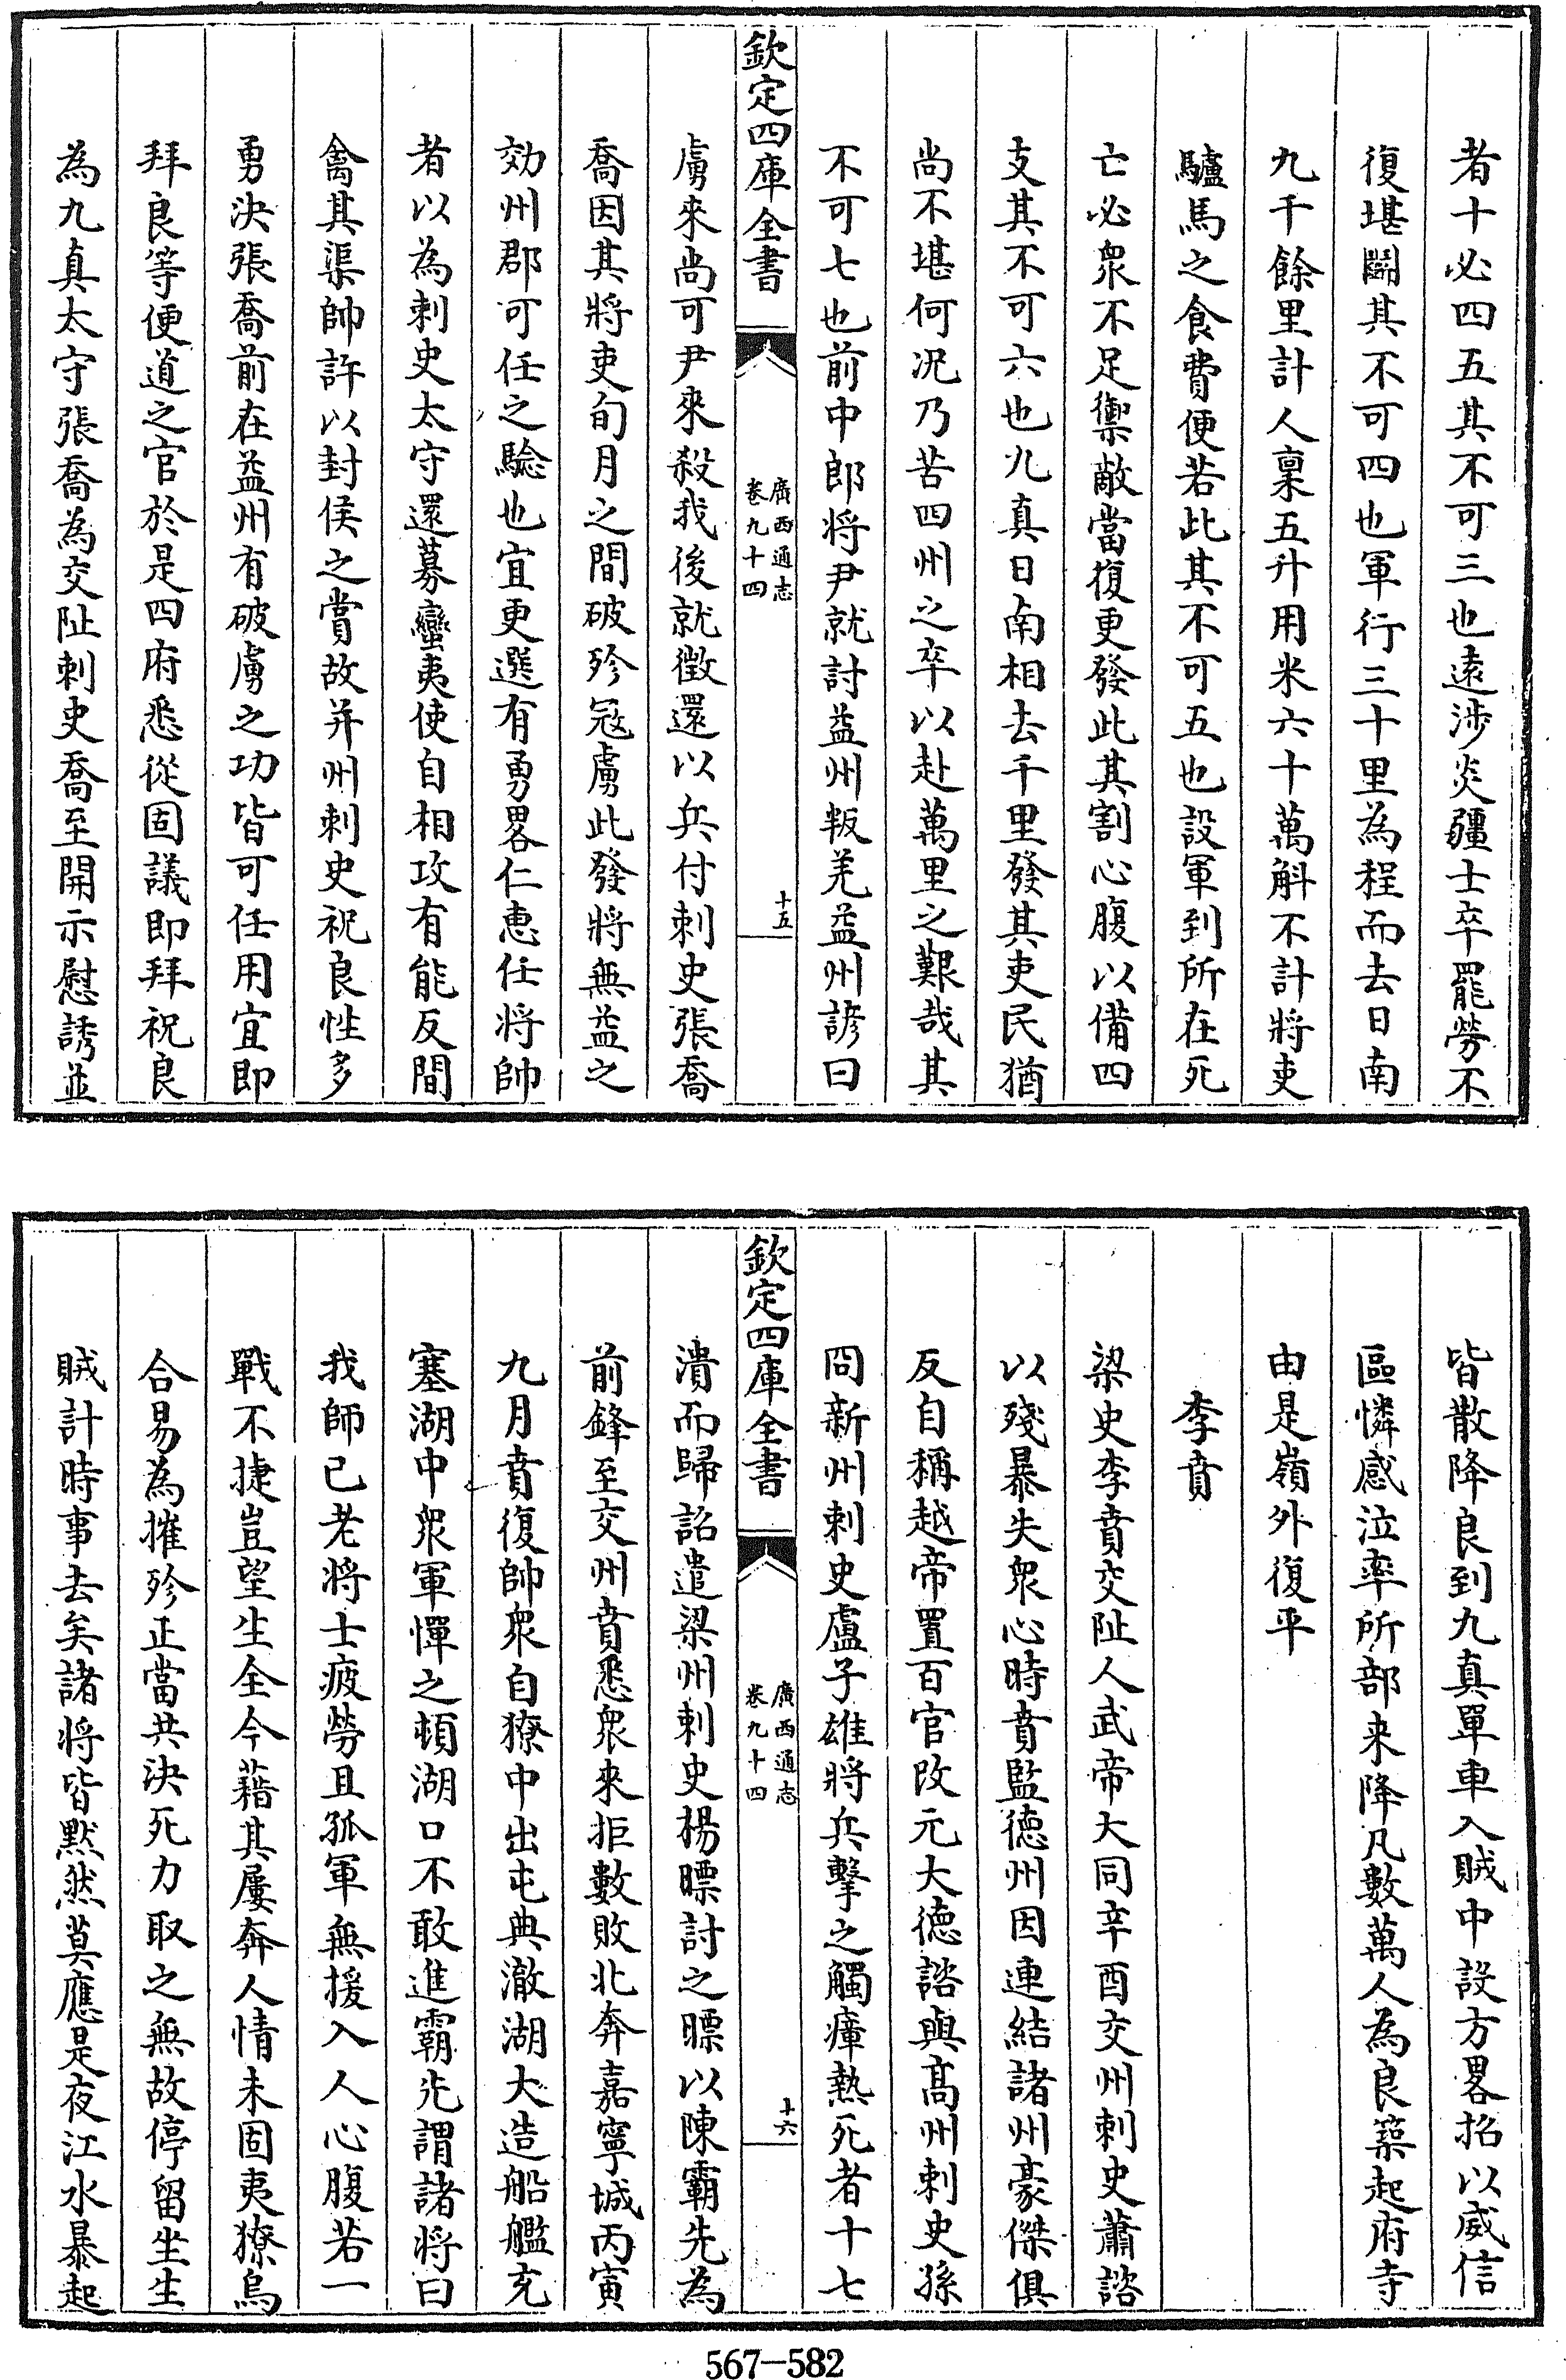 者十必四五其不可三也遠涉炎疆士卒罷勞不
復堪鬬其不可四也軍行三十里為程而去日南
九千餘里計人稟五升用米六十萬斛不計將吏
驢馬之食費便若此其不可五也設軍到所在死
亡必衆不足禦敵當復更發此其割心腹以備四
支其不可六也九真日南相去千里發其吏民猶
尚不堪何况乃苦四州之卒以赴萬里之艱哉其
不可七也前中郎將尹就討益州叛羌益州諺曰
欽定四庫全書
廣西通志
卷九十四
十五
虜來尚可尹來殺我後就徵還以兵付刺史張喬
喬因其將吏旬月之間破殄冦虜此發將無益之
効州郡可任之驗也宜更選有勇畧仁惠任將帥
者以為刺史太守還募蠻夷使自相攻有能反間
禽其渠帥許以封侯之賞故并州刺史祝良性多
勇決張喬前在益州有破虜之功皆可任用宜即
拜良等便道之官於是四府悉從固議即拜祝良
為九真太守張喬為交阯刺史喬至開示慰誘並
皆散降良到九真單車入賊中設方畧招以威信
區憐感泣率所部来降凡數萬人為良築起府寺
由是嶺外復平
李賁
梁史李賁交阯人武帝大同辛酉交州刺史蕭諮
以殘暴失衆心時賁監德州因連結諸州豪傑俱
反自稱越帝置百官改元大德諮與髙州刺史孫
冏新州刺史盧子雄將兵擊之觸瘴熱死者十七
欽定四庫全書
廣西通志
卷九十四
十六
潰而歸詔遣梁州刺史楊瞟討之瞟以陳霸先為
前鋒至交州賁悉衆來拒數敗北奔嘉寧城丙寅
九月賁復帥衆自獠中出屯典澈湖大造船艦充
塞湖中衆軍憚之頓湖口不敢進霸先謂諸將曰
我師已老將士疲勞且孤軍無援入人心腹若一
戰不捷豈望生全今藉其屢奔人情未固夷獠烏
合易為摧殄正當共決死力取之無故停留坐生
賊計時事去矣諸將皆黙然莫應是夜江水暴起
567—582